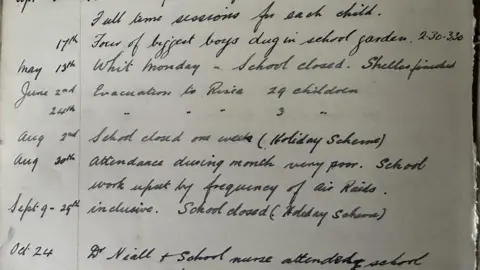 Full time sessions for each child.
17th Four of biggest boys dug in school garden. 2.30-3.30
May 13th Whit Monday - School closed. Shelter finished
June 2nd Evacuation to Risca 29 children
24th " " " 3 "
Aug 2nd School closed one week (Holiday Scheme)
Aug 30th Attendance during month very poor. School
work upset by frequency of Air Raids.
Sept 9 - 29th inclusive. School closed (Holiday Scheme)
Oct 24 Dr Niall + School nurse attended school